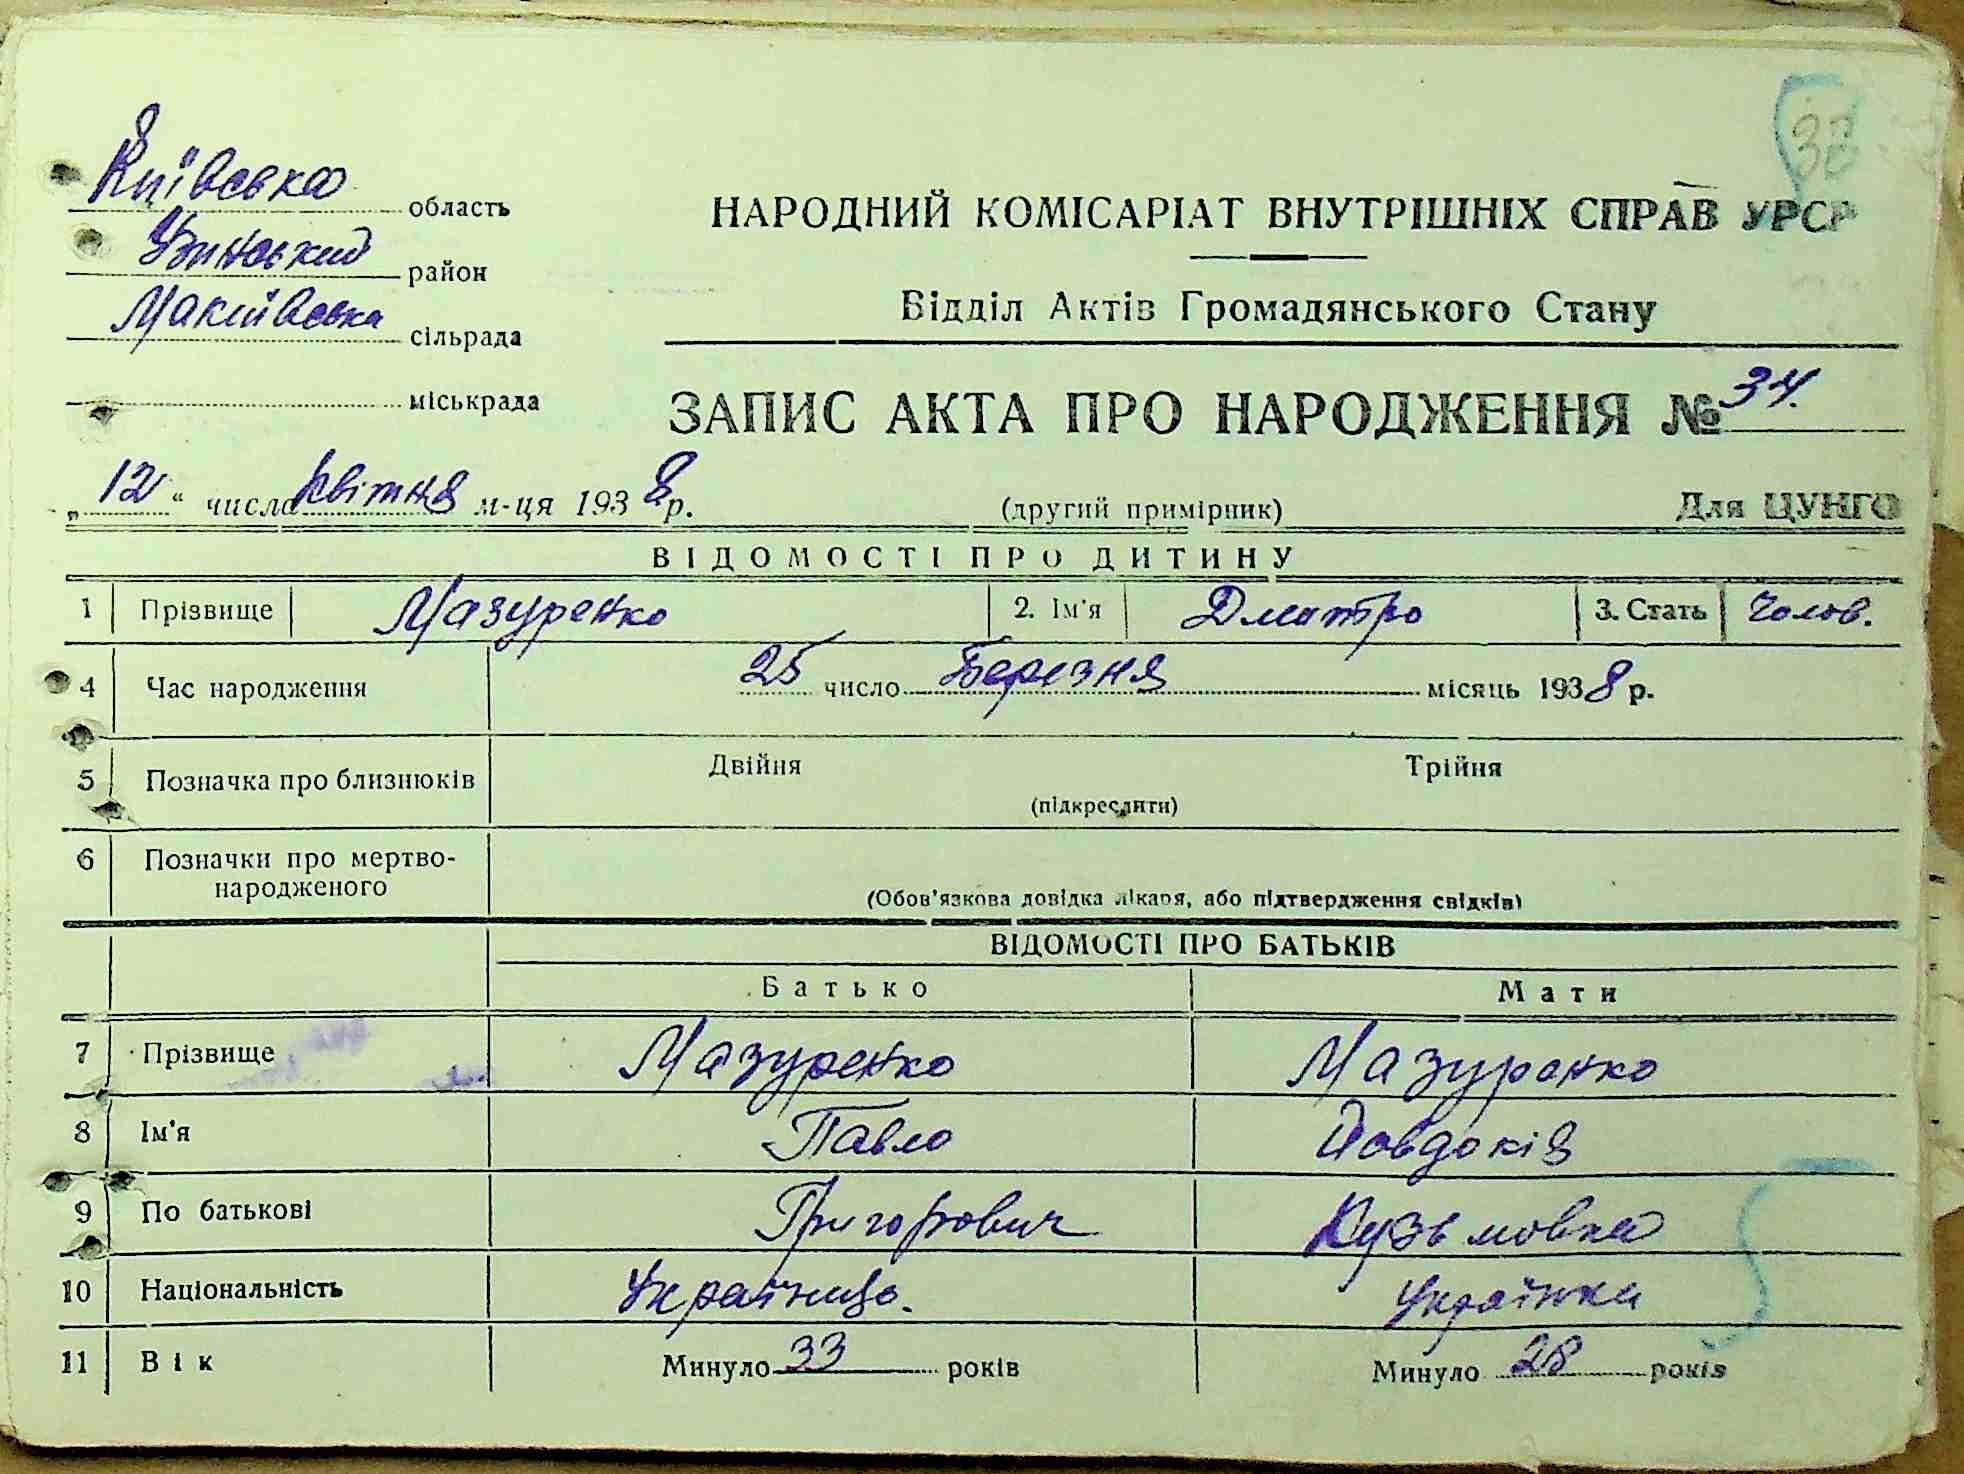 38
Київська область
Узинський район
Макіївська сільрада
міськрада
НАРОДНИЙ КОМІСАРІАТ ВНУТРІШНІХ СПРАВ УРСР
Відділ Актів Громадянського Стану
ЗАПИС АКТА ПРО НАРОДЖЕННЯ № 34.
„12“ числа квітня м-ця 1938 р. (другий примірник) Для ЦУНГО
ВІДОМОСТІ ПРО ДИТИНУ
1 Прізвище Мазуренко 2. Ім'я Дмитро 3. Стать Чолов.
4 Час народження 25 число Березня місяць 1938 р.
5 Позначка про близнюків Двійня Трійня
(підкреслити)
6 Позначки про мертво-
народженого
(Обов'язкова довідка лікаря, або підтвердження свідків)
ВІДОМОСТІ ПРО БАТЬКІВ
Батько Мати
7 Прізвище Мазуренко Мазуренко
8 Ім'я Павло Йовдокія
9 По батькові Григорович Кузьмовна
10 Національність Українець. Українка
11 Вік Минуло 33 років Минуло 28 років